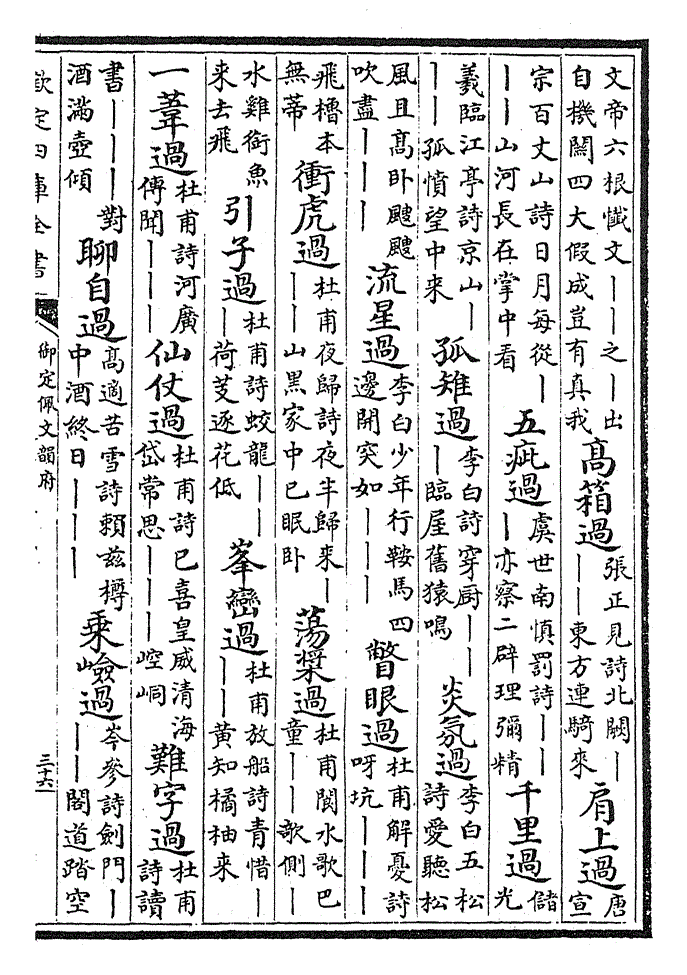 文帝六根懺文——之—出自機關四大假成豈有真我 高箱過 張正見詩北闕———東方連騎來 肩上過 唐宣
宗百丈山詩日月每從———山河長在掌中看 五疵過 虞世南慎罰詩———亦察二辟理彌精 千里過 儲光
羲臨江亭詩京山———孤憤望中來 孤雉過 李白詩穿厨———臨屋舊猿鳴 炎氛過 李白五松詩愛聽松
風且高卧颼颼吹盡——— 流星過 李白少年行鞍馬四邊開突如——— 瞥眼過 杜甫解憂詩呀坑———
飛櫓本無蒂 衝虎過 杜甫夜歸詩夜半歸來———山黑家中已眠卧 蕩槳過 杜甫閬水歌巴童——歌側—
水雞銜魚來去飛 引子過 杜甫詩蛟龍———荷芰逐花低 峯巒過 杜甫放船詩青惜———黄知橘柚來
一葦過 杜甫詩河廣傳聞——— 仙仗過 杜甫詩已喜皇威清海岱常思———崆峒 難字過 杜甫詩讀
書———對酒滿壺傾 聊自過 高適苦雪詩賴兹樽中酒終日——— 乘嶮過 岑參詩劍門———閣道踏空
欽定四庫全書 御定佩文韻府 三十六